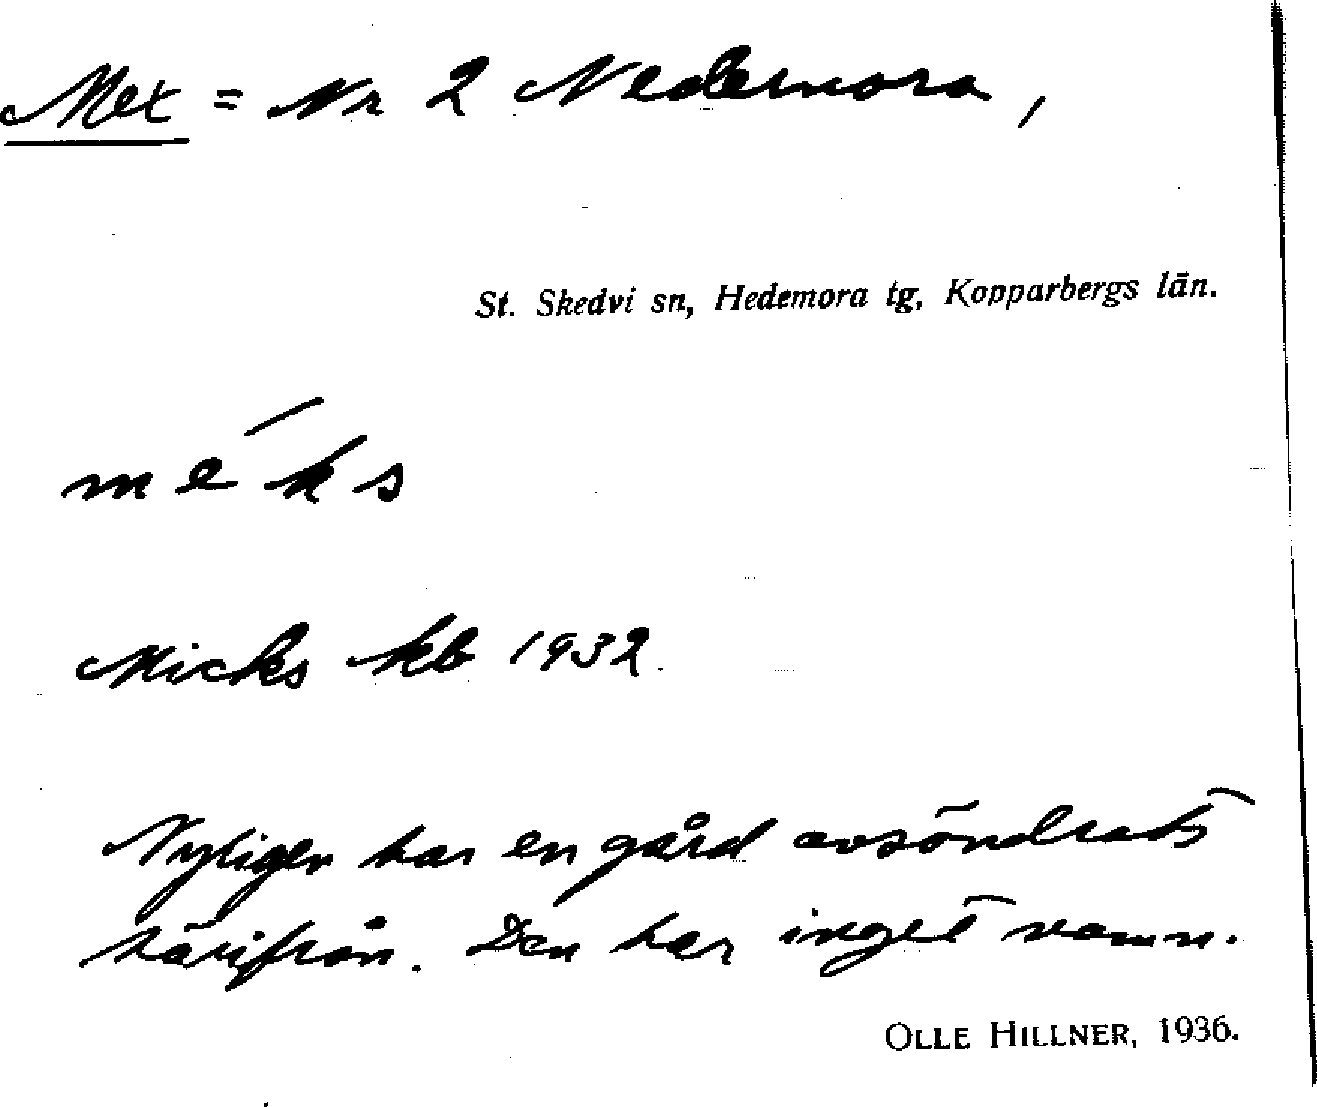 Mex = Nr 2 Nedernora,
St. Skedvi sn, Hedemora tg, Kopparbergs län.
méks
Micks kb 1932.
Nyligen har en gård avsöndrats
härifrån. Den har inget namn.
OLLE HILLNER, 1936.